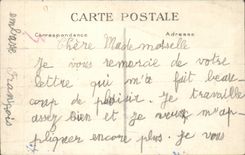 CARTE POSTALE
Correspondance
Adresse
Chère Mademoiselle
Je vous remercie de votre
lettre qui m'a fait beau
coup de plaisir. Je travaille
assez bien et je veux m'ap
pliquer encore plus. Je vous
embrasse
François